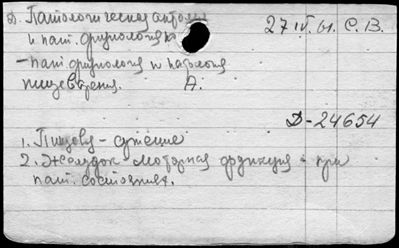 д. Патологическая анатом
27 IV. 61. С. В.
и пат. физиология
– пат физиология и патология
пищеварения. А.
Д-24654
1. Пищевод – сужение
2. Желудок моторная функция при
пат. состояниях.